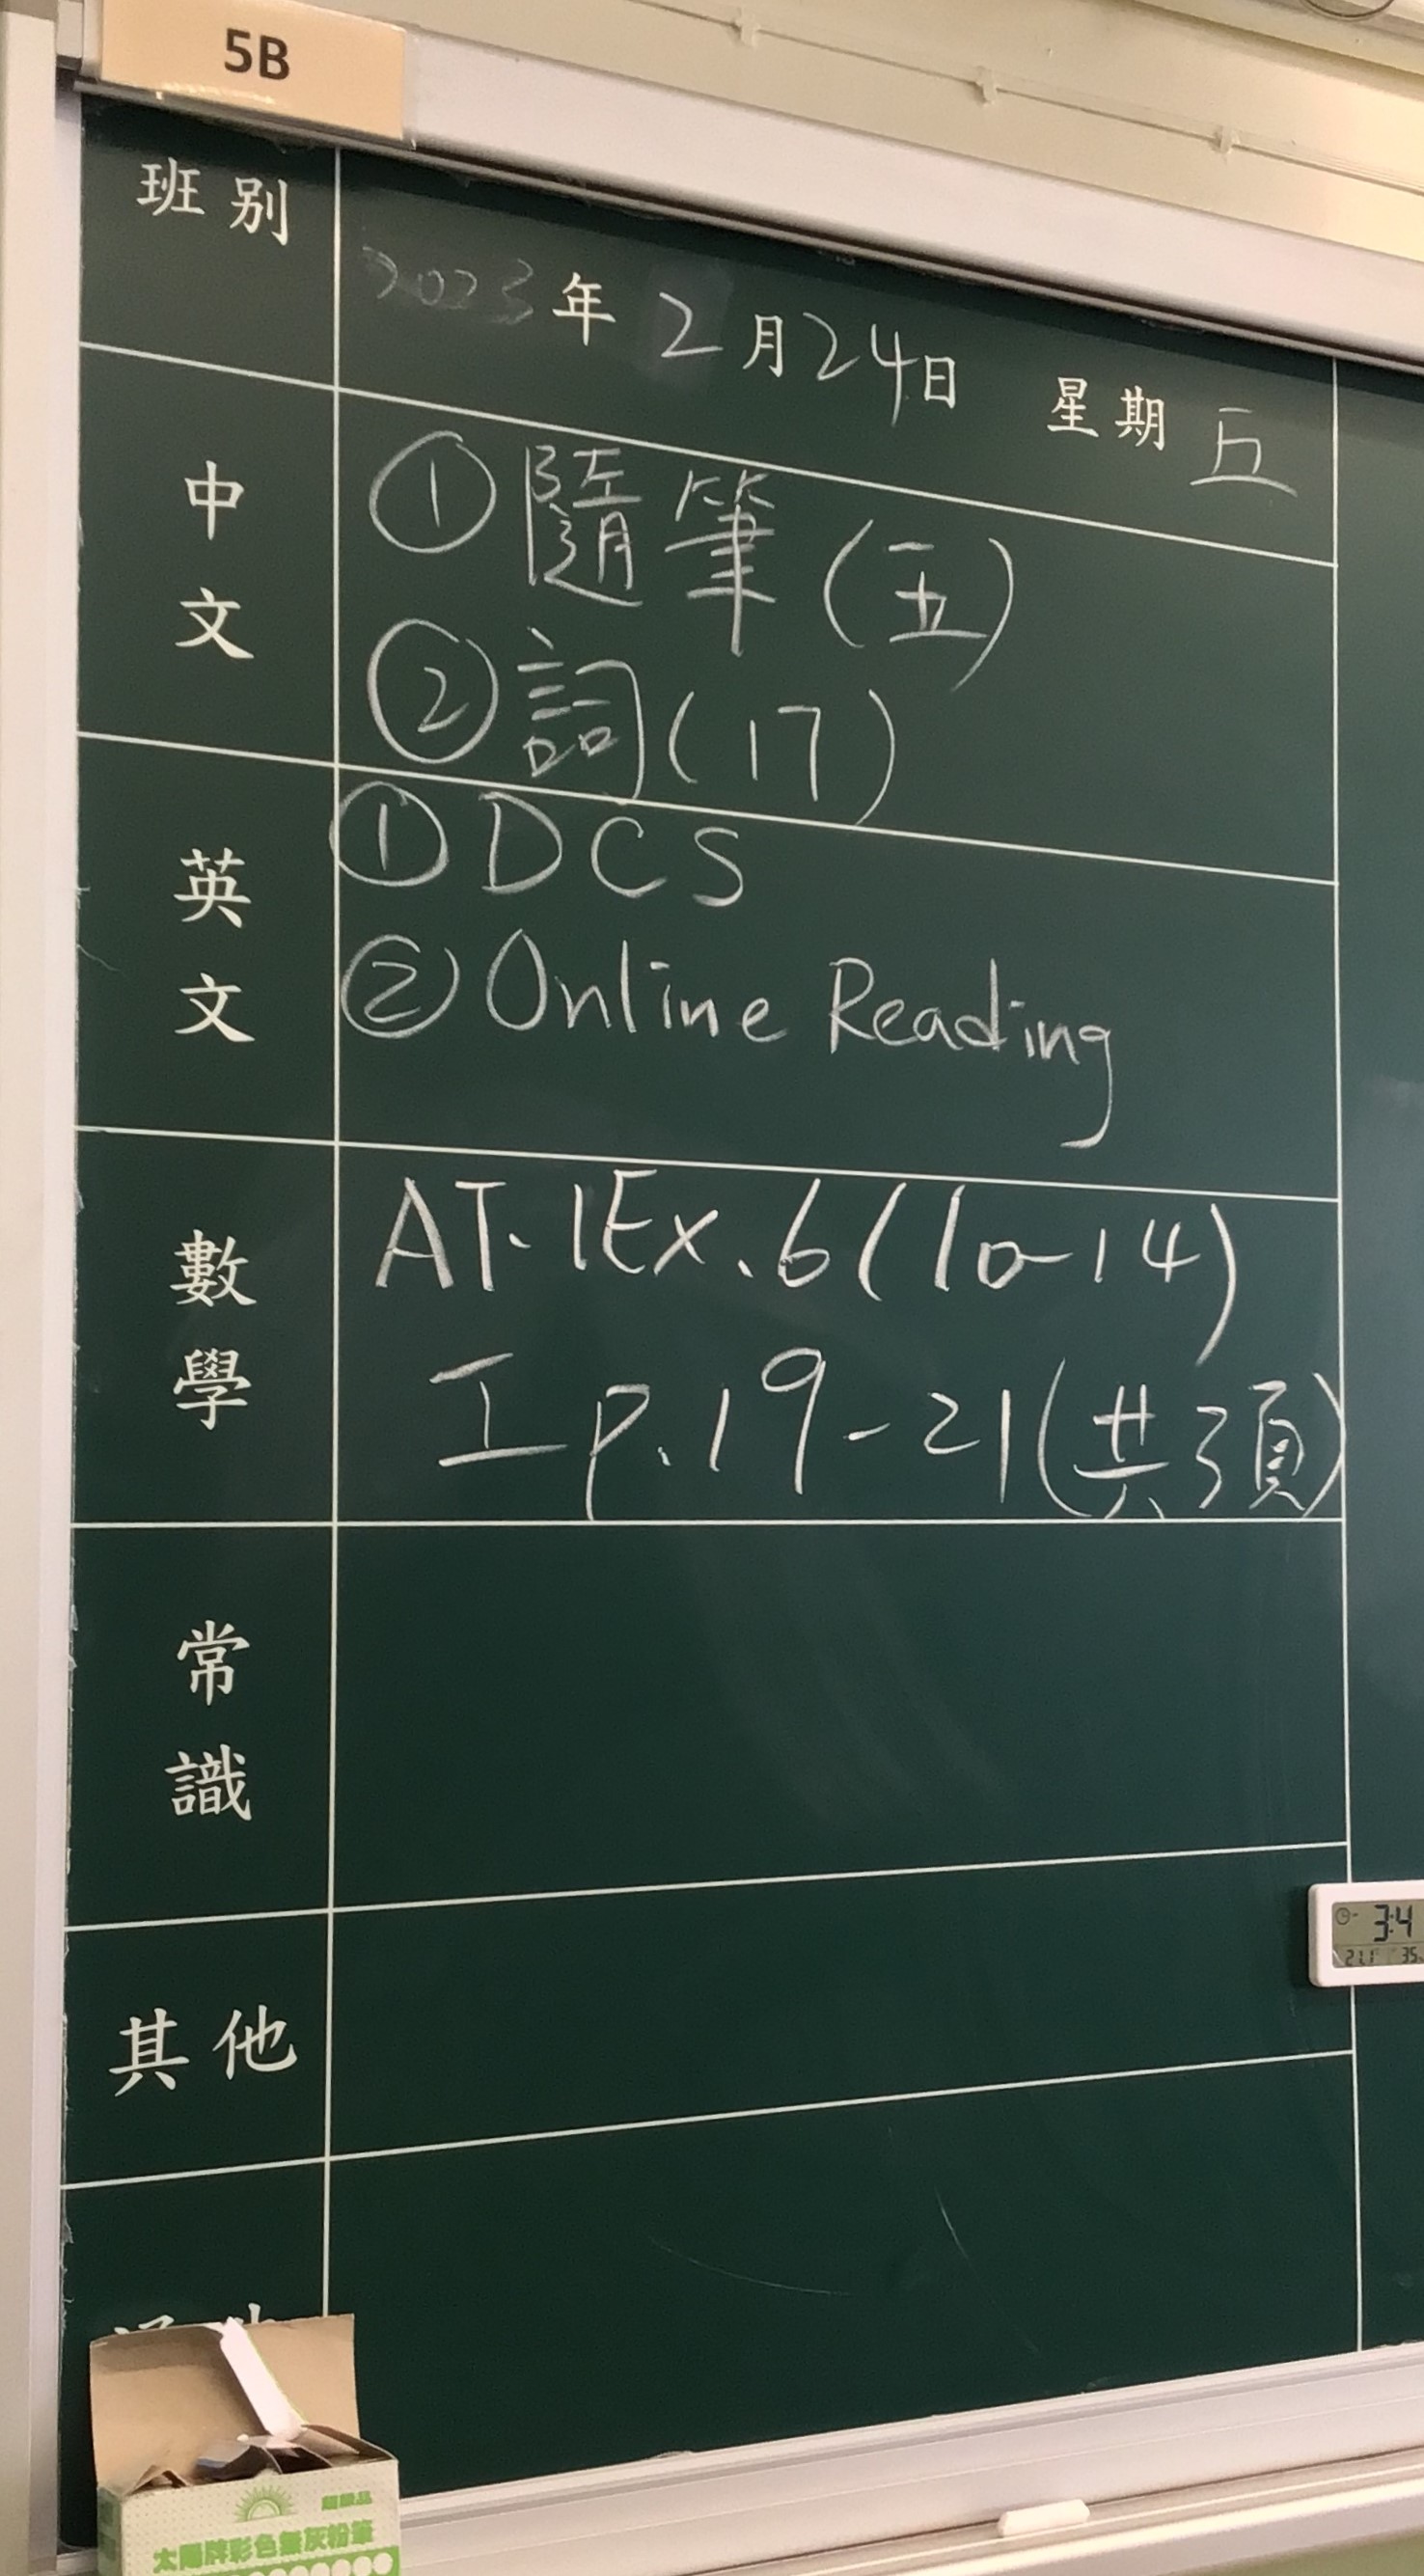 5B
班別
2023年2月24日 星期五
中文
①隨筆(五)
②詞(17)
英文
①DCS
②Online Reading
數學
AT.1Ex.6(10-14)
工p.19-21(共3頁)
常識
其他
3:4
21.1 35
太陽牌彩色無灰粉筆